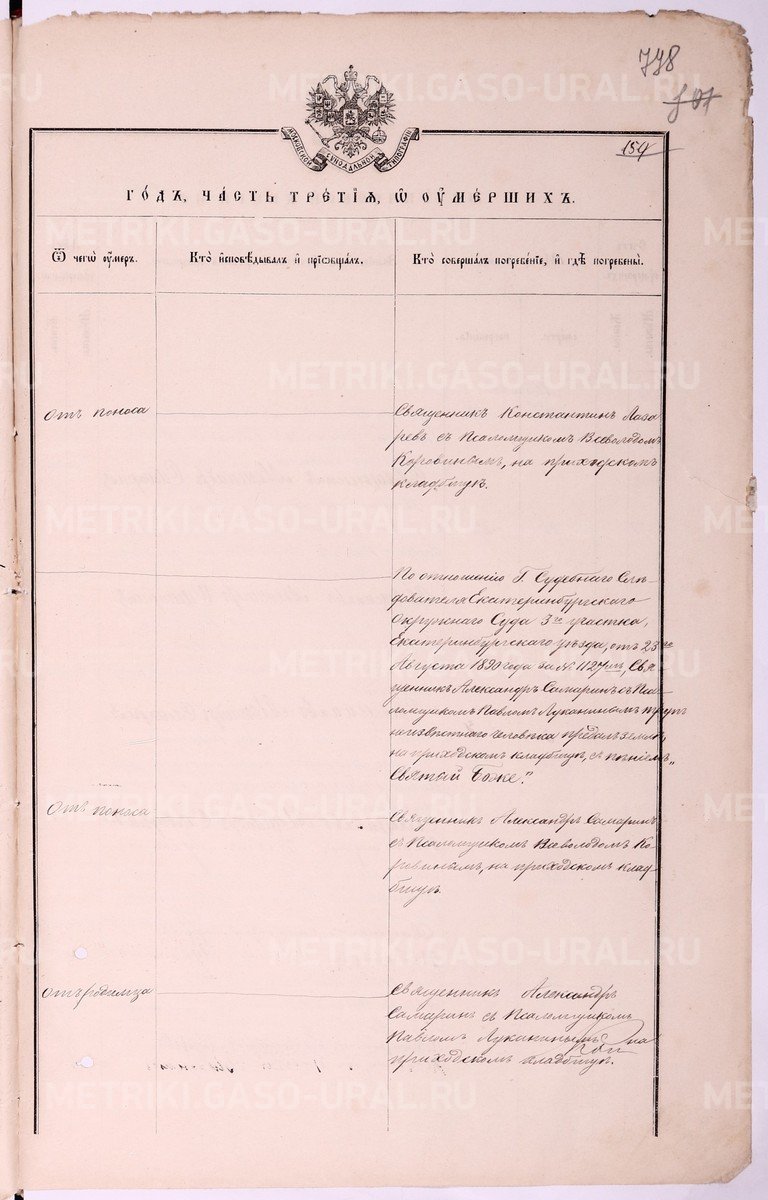 778
107
159
МОСКОВСКОЙ СѴНОДАЛЬНОЙ ТИПОГРАФІИ
ГО́ДЪ, ЧА́СТЬ ТРЕ́ТІѦ, Ѡ ОУМЕ́РШИХЪ.
Ѿ чегѡ̀ оу́меръ.
Кто̀ и҆сповѣ́дывалъ и҆ прїѡбща́лъ.
Кто̀ соверша́лъ погребе́нїе, и҆ гдѣ̀ погребены̀.
отъ поноса
Священникъ Константинъ Лаза
ревъ съ Псаломщикомъ Всеволодомъ
Коровинымъ, на приходскомъ
кладбищѣ.
По отношенію Г. Судебнаго Слѣ-
дователя Екатеринбургскаго
Окружнаго Суда 3го участка,
Екатеринбургскаго уѣзда, отъ 23го
Августа 1890 года за № 1127мъ, Свя
щенникъ Александръ Самаринъ съ Пса-
ломщикомъ Павломъ Луканинымъ трупъ
неизвѣстнаго человѣка предалъ землѣ,
на приходскомъ кладбищѣ, съ пѣніемъ „
Святый Боже."
Отъ поноса
Священникъ Александръ Самаринъ
съ Псаломщикомъ Всеволодомъ Ко
ровинымъ, на приходскомъ клад
бищѣ.
отъ родимца
Священникъ Александръ
Самаринъ съ Псаломщикомъ
Павломъ Луканинымъ на
приходскомъ кладбищѣ.
METRIKI.GASO-URAL.RU